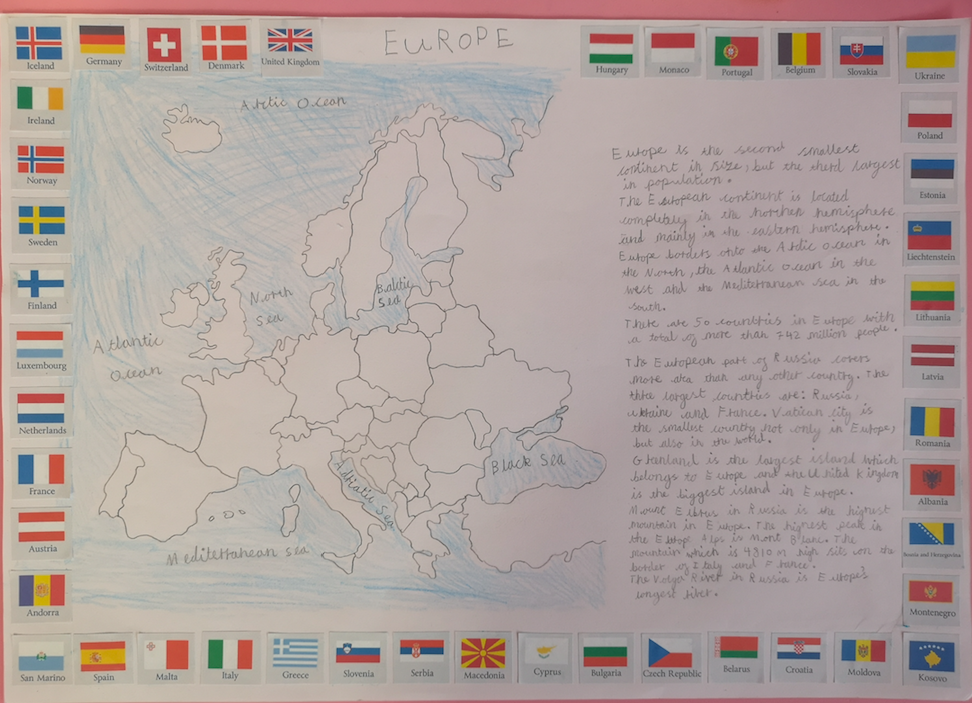 EUROPE
Iceland
Germany
Switzerland
Denmark
United Kingdom
Hungary
Monaco
Portugal
Belgium
Slovakia
Ukraine
Ireland
Norway
Sweden
Finland
Luxembourg
Netherlands
France
Austria
Andorra
Arctic Ocean
North
Sea
Baltic
Sea
Atlantic
Ocean
Black Sea
Adriatic Sea
Mediterranean sea
Europe is the second smallest
continent in size, but the therd largest
in population.
The European continent is located
completely in the northen hemisphere
and mainly in the eastern hemisphere.
Europe borders onto the Arctic Ocean in
the North, the Atlantic Ocean in the
west and the Mediterranean sea in the
south.
There are 50 countries in Europe with
a total of more than 742 million people.
The European part of Russia covers
more area than any other country. The
three largest countries are: Russia,
ukraine and France. Vatican city is
the smallest country not only in Europe,
but also in the world.
Greenland is the largest island which
belongs to Europe and the United Kingdom
is the biggest island in Europe.
Mount Elbrus in Russia is the highest
mountain in Europe. The highest peak in
the Europe Alps is Mont Blanc. The
mountain which is 4810 m high sits on the
border of Italy and France.
The Volga River in Russia is Europe's
longest river.
Poland
Estonia
Liechtenstein
Lithuania
Latvia
Romania
Albania
Bosnia and Herzegovina
Montenegro
San Marino
Spain
Malta
Italy
Greece
Slovenia
Serbia
Macedonia
Cyprus
Bulgaria
Czech Republic
Belarus
Croatia
Moldova
Kosovo